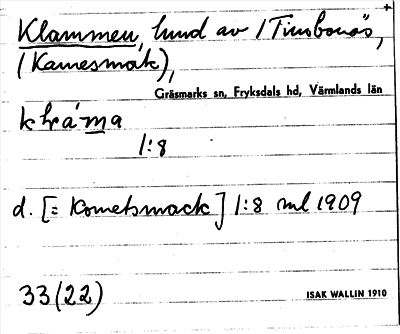 +
Klammen, hund av 1 Timbonäs,
(Kamesmak),
Gräsmarks sn, Fryksdals hd, Värmlands län
1:8
d. [= Kometsmack] 1:8 ml 1909
33(22)
ISAK WALLIN 1910